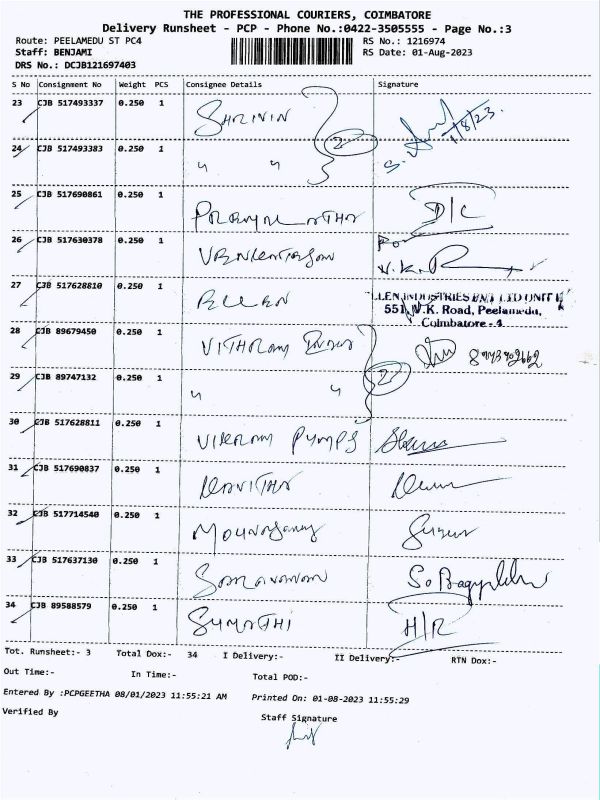 THE PROFESSIONAL COURIERS, COIMBATORE
Delivery Runsheet - PCP - Phone No.:0422-3505555 - Page No.:3
Route: PEELAMEDU ST PC4 RS No.: 1216974
Staff: BENJAMI RS Date: 01-Aug-2023
DRS No.: DCJB121697403
S No Consignment No Weight PCS Consignee Details Signature
23 CJB 517493337 0.250 1 SHRININ 1/8/23.
24 CJB 517493383 0.250 1 " " 2
25 CJB 517690861 0.250 1 D/C
26 CJB 517630378 0.250 1 For
27 CJB 517628810 0.250 1 ELLEN LLEN INDUSTRIES UNIT II
551, V.K. Road, Peelamedu,
Coimbatore - 4
28 CJB 89679450 0.250 1
29 CJB 89747132 0.250 1 " " 2
30 CJB 517628811 0.250 1 VIKRAM PUMPS
31 CJB 517690837 0.250 1 KAVITHA
32 CJB 517714540 0.250 1
33 CJB 517637130 0.250 1 SARAVANAN
34 CJB 89588579 0.250 1 SUMATHI H/R
Tot. Runsheet:- 3 Total Dox:- 34 I Delivery:- II Delivery:- RTN Dox:-
Out Time:- In Time:- Total POD:-
Entered By :PCPGEETHA 08/01/2023 11:55:21 AM Printed On: 01-08-2023 11:55:29
Verified By Staff Signature